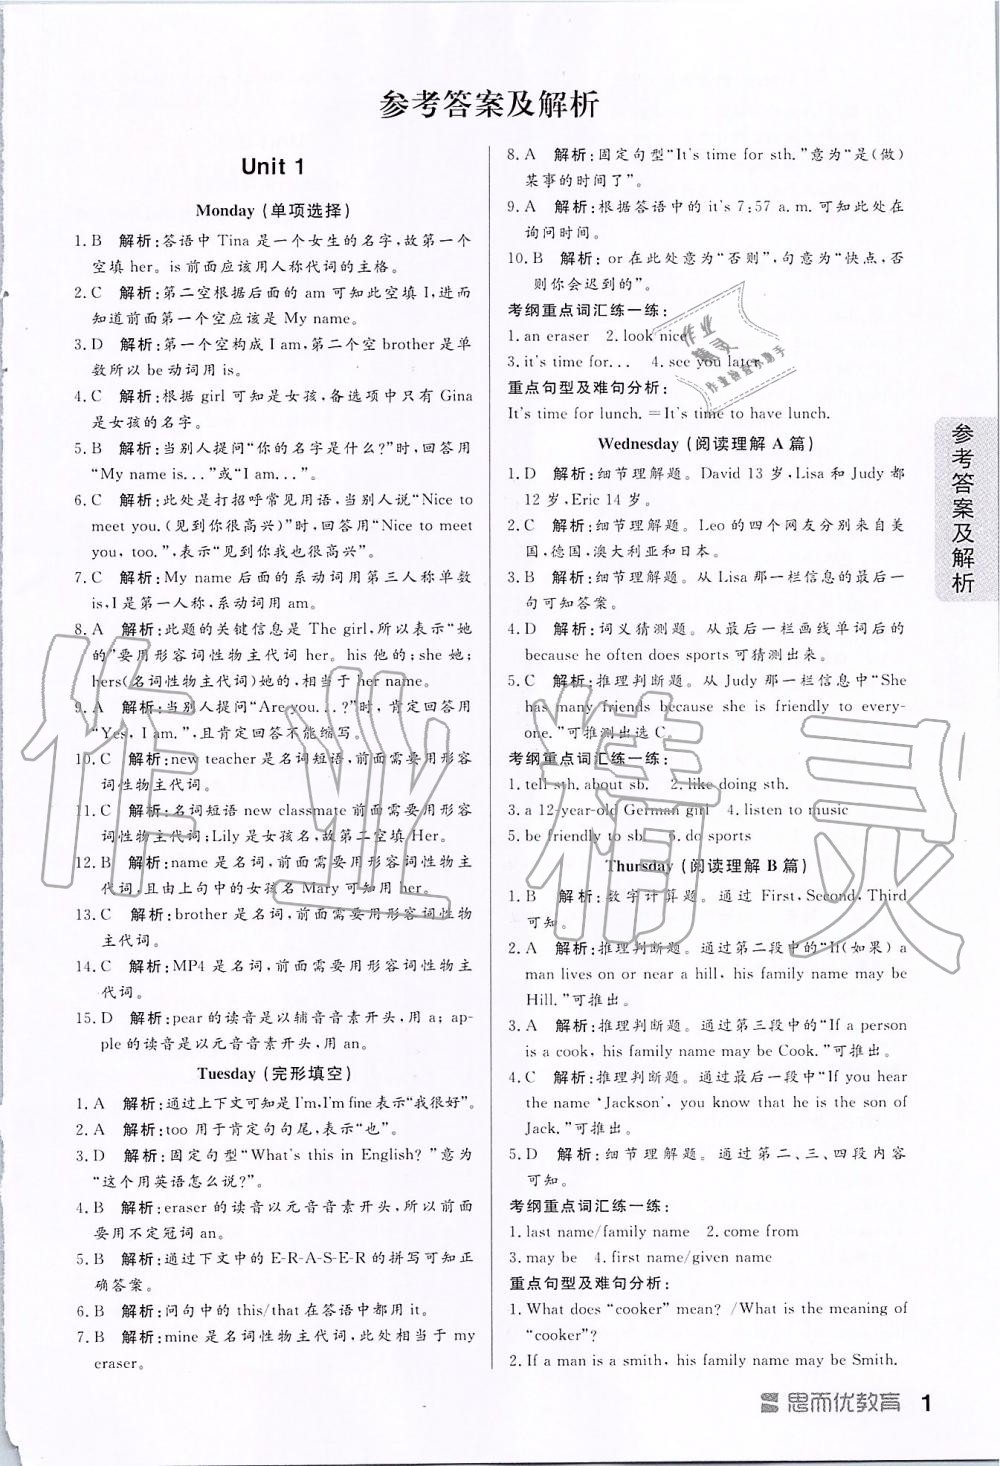 参考答案及解析
Unit 1
Monday (单项选择)
1. B 解析:答语中 Tina 是一个女生的名字,故第一个
空填 her。is 前面应该用人称代词的主格。
2. C 解析:第二空根据后面的 am 可知此空填 I,进而
知道前面第一个空应该是 My name。
3. D 解析:第一个空构成 I am,第二个空 brother 是单
数所以 be动词用 is。
4. C 解析:根据 girl 可知是女孩,备选项中只有 Gina
是女孩的名字。
5. B 解析:当别人提问“你的名字是什么?”时,回答用
“My name is...”或“I am...”。
6. C 解析:此处是打招呼常见用语,当别人说“Nice to
meet you.(见到你很高兴)”时,回答用“Nice to meet
you, too.”,表示“见到你我也很高兴”。
7. C 解析:My name 后面的系动词用第三人称单数
is,I 是第一人称,系动词用 am。
8. A 解析:此题的关键信息是 The girl,所以表示“她
的”要用形容词性物主代词 her。his 他的;she 她;
hers(名词性物主代词)她的,相当于 her name。
9. A 解析:当别人提问“Are you...?”时,肯定回答用
“Yes, I am.”,且肯定回答不能缩写。
10. C 解析:new teacher 是名词短语,前面需要用形容
词性物主代词。
11. C 解析:名词短语 new classmate 前面需要用形容
词性物主代词;Lily 是女孩名,故第二空填 Her。
12. B 解析:name 是名词,前面需要用形容词性物主
代词,且由上句中的女孩名 Mary 可知用 her。
13. C 解析:brother 是名词,前面需要用形容词性物
主代词。
14. C 解析:MP4 是名词,前面需要用形容词性物主
代词。
15. D 解析:pear 的读音是以辅音音素开头,用 a; ap-
ple 的读音是以元音音素开头,用 an。
Tuesday (完形填空)
1. A 解析:通过上下文可知是 I'm,I'm fine 表示“我很好”。
2. A 解析:too 用于肯定句句尾,表示“也”。
3. D 解析:固定句型“What's this in English?”意为
“这个用英语怎么说?”
4. B 解析:eraser 的读音以元音音素开头,所以前面
要用不定冠词 an。
5. B 解析:通过下文中的 E-R-A-S-E-R 的拼写可知正
确答案。
6. B 解析:问句中的 this/that 在答语中都用 it。
7. B 解析:mine 是名词性物主代词,此处相当于 my
eraser。
8. A 解析:固定句型“It's time for sth.”意为“是(做)
某事的时间了”。
9. A 解析:根据答语中的 it's 7:57 a.m. 可知此处在
询问时间。
10. B 解析:or 在此处意为“否则”,句意为“快点,否
则你会迟到的”。
考纲重点词汇练一练:
1. an eraser 2. look nice
3. it's time for... 4. see you later
重点句型及难句分析:
It's time for lunch. = It's time to have lunch.
Wednesday (阅读理解 A 篇)
1. D 解析:细节理解题。David 13 岁,Lisa 和 Judy 都
12 岁,Eric 14 岁。
2. C 解析:细节理解题。Leo 的四个网友分别来自美
国,德国,澳大利亚和日本。
3. B 解析:细节理解题。从 Lisa 那一栏信息的最后一
句可知答案。
4. D 解析:词义猜测题。从最后一栏画线单词后的
because he often does sports 可猜测出来。
5. C 解析:推理判断题。从 Judy 那一栏信息中“She
has many friends because she is friendly to every-
one.”可推测出选 C。
考纲重点词汇练一练:
1. tell sth. about sb. 2. like doing sth.
3. a 12-year-old German girl 4. listen to music
5. be friendly to sb. 6. do sports
Thursday (阅读理解 B 篇)
1. B 解析:数字计算题。通过 First, Second, Third
可知。
2. A 解析:推理判断题。通过第二段中的“If(如果) a
man lives on or near a hill, his family name may be
Hill.”可推出。
3. A 解析:推理判断题。通过第三段中的“If a person
is a cook, his family name may be Cook.”可推出。
4. C 解析:推理判断题。通过最后一段中“If you hear
the name ‘Jackson’, you know that he is the son of
Jack.”可推出。
5. D 解析:细节理解题。通过第二、三、四段内容
可知。
考纲重点词汇练一练:
1. last name/family name 2. come from
3. may be 4. first name/given name
重点句型及难句分析:
1. What does “cooker” mean? /What is the meaning of
“cooker”?
2. If a man is a smith, his family name may be Smith.
参考答案及解析
思而优教育 1
作业精灵
作业
精灵